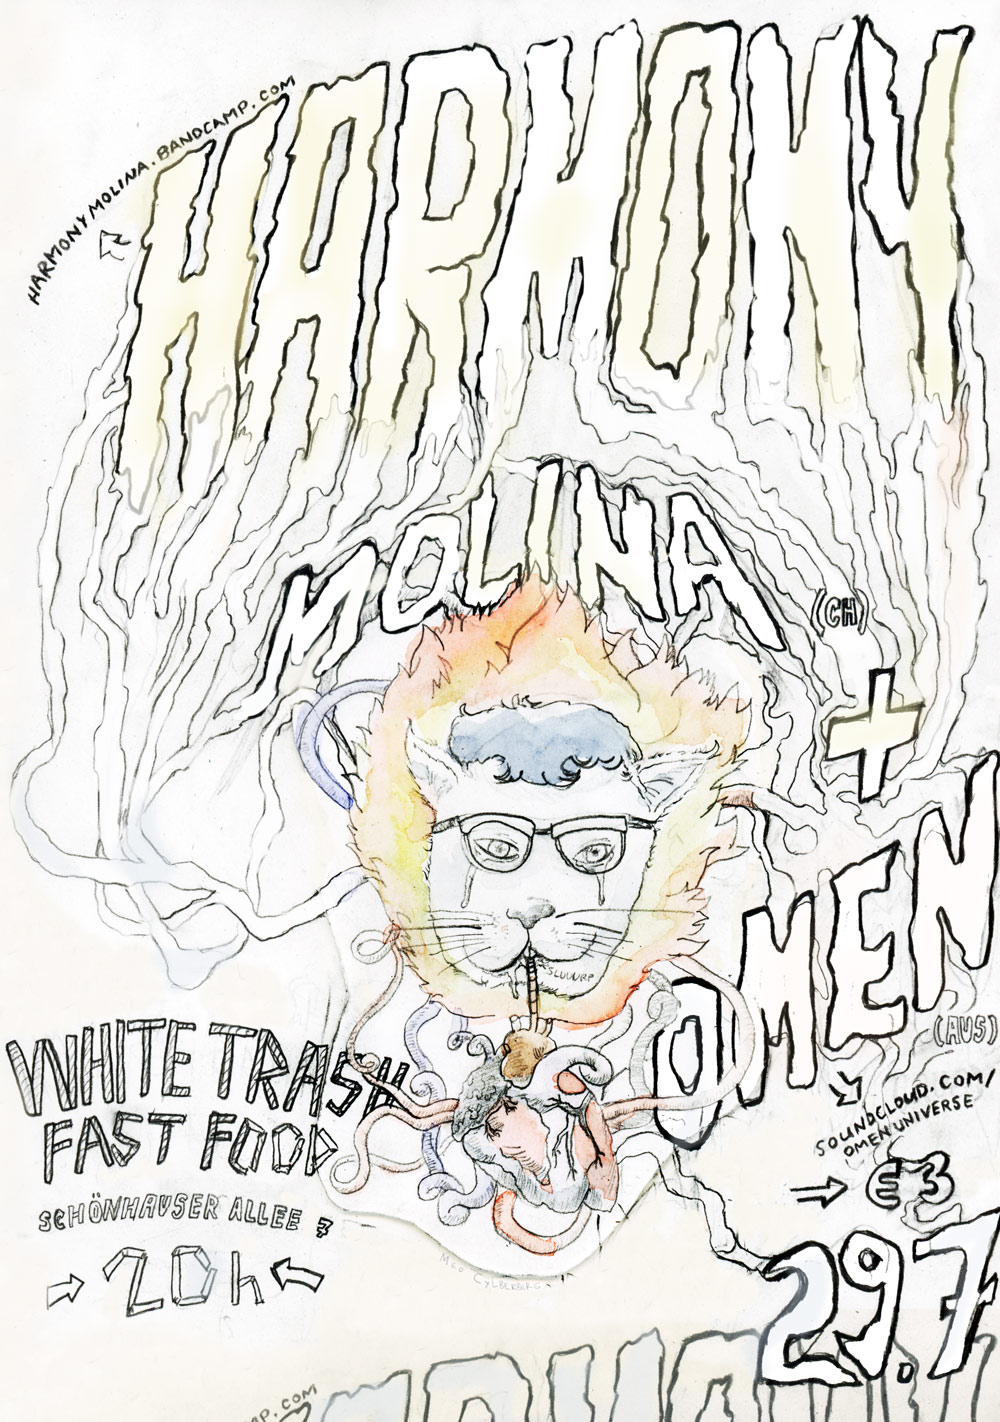 HARMONYMOLINA.BANDCAMP.COM
HARMONY
MOLINA
(CH)
+
OMEN
(AUS)
SOUNDCLOUD.COM/
OMENUNIVERSE
€3
29.7
SLUUURP
WHITE TRASH
FAST FOOD
SCHÖNHAUSER ALLEE 7
20h
CYLBERBERG
.COM
HARMONY